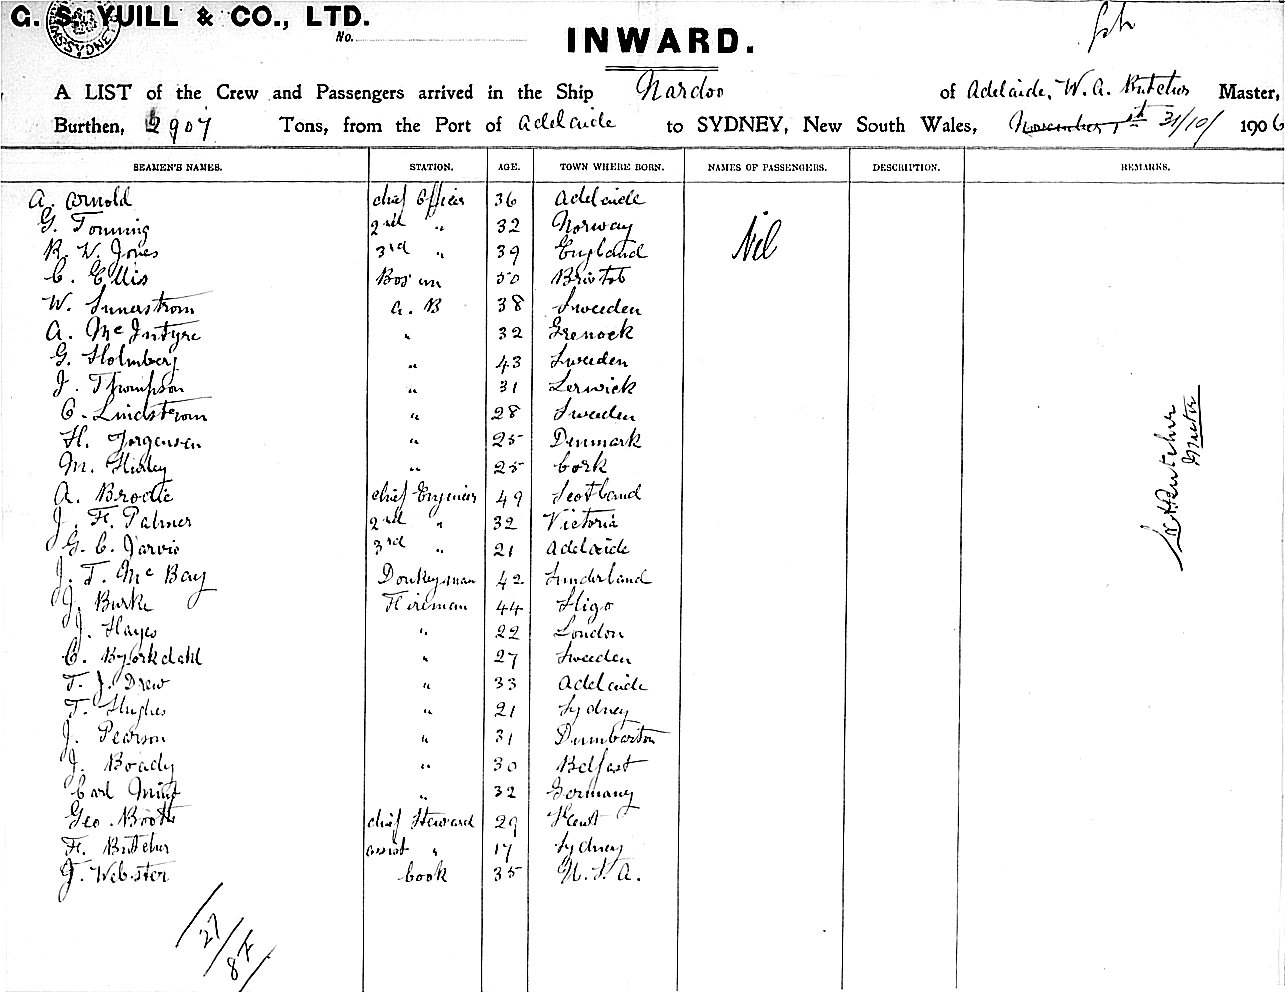 G. S. YUILL & CO., LTD.
No.
INWARD.
A LIST of the Crew and Passengers arrived in the Ship Nardoo of Adelaide, W. A. Butcher Master,
Burthen, 2907 Tons, from the Port of Adelaide to SYDNEY, New South Wales, November 1st 31/10/ 1906
SEAMEN'S NAMES. STATION. AGE. TOWN WHERE BORN. NAMES OF PASSENGERS. DESCRIPTION. REMARKS.
A. Arnold chief Officer 36 Adelaide
G. Tonning 2nd " 32 Norway Nil
R. W. Jones 3rd " 39 England
C. Ellis Bos'un 50 Bristol
W. Sunerstrom A. B 38 Sweeden
A. McIntyre " 32 Grenock
G. Holmberg " 43 Sweeden
J. Thompson " 31 Lerwick
C. Lindstrom " 28 Sweeden
H. Jorgensen " 25 Denmark
M. " 25 Cork
A. Brodie chief Engineer 49 Scotland
J. H. Palmer 2nd " 32 Victoria
G. C. Jarvis 3rd " 21 Adelaide
J. T. McBay Donkeyman 42 Sunderland
J. Burke Fireman 44 Sligo
J. Hayes " 22 London
C. Byorkdahl " 27 Sweeden
T. J. Drew " 33 Adelaide
T. Hughes " 21 Sydney
J. Pearson " 31 Dumbarton
J. Boady " 30 Belfast
Carl " 32 Germany
Geo. Booth chief Steward 29 Kent
H. Butcher assist " 17 Sydney
J. Webster Cook 35 U.S.A.
W A Butcher
Master
27